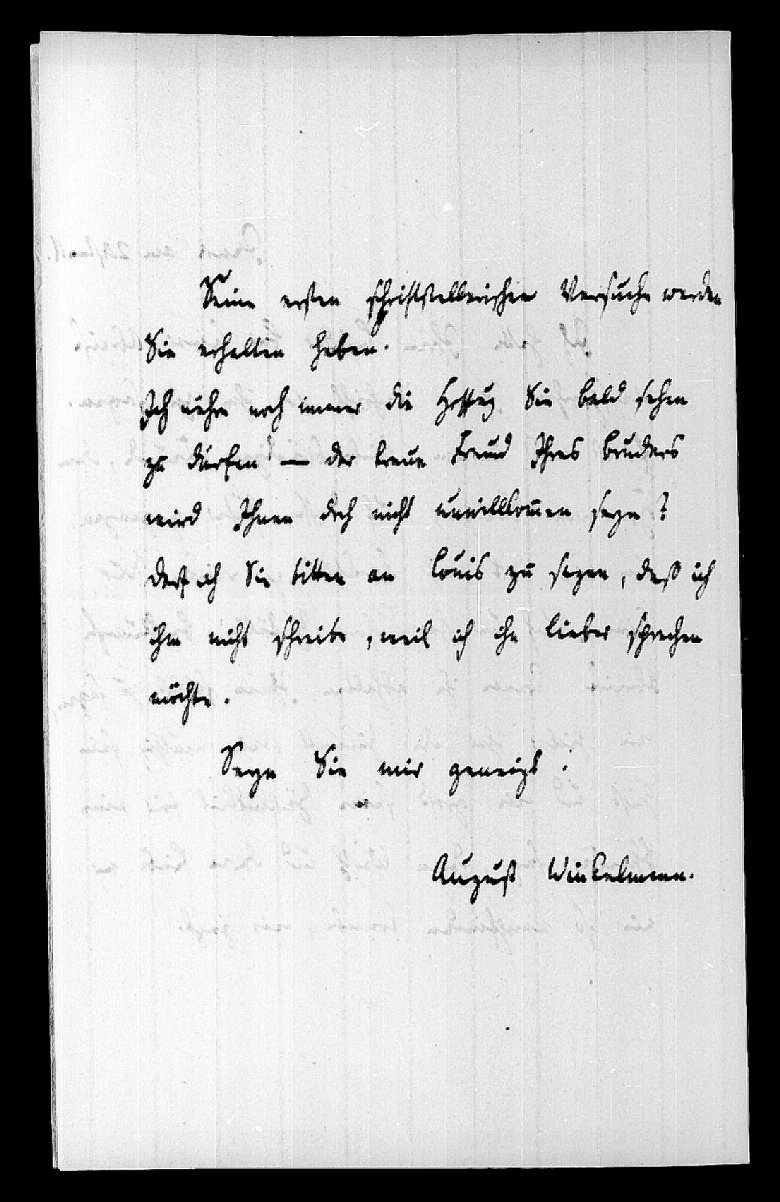 Seine ersten schriftstellerischen Versuche werden
Sie erhalten haben.
Ich nähre noch immer die Hoffnug Sie bald sehen
zu dürfen — der treue Freund Ihres Bruders
wird Ihnen doch nicht unwillkom̅en seyn?
darf ich Sie bitten an Louis zu sagen, daß ich
ihm nicht schreibe, weil ich ihn lieber sprechen
möchte.
Seyn Sie mir geneigt!
August Winkelmann.